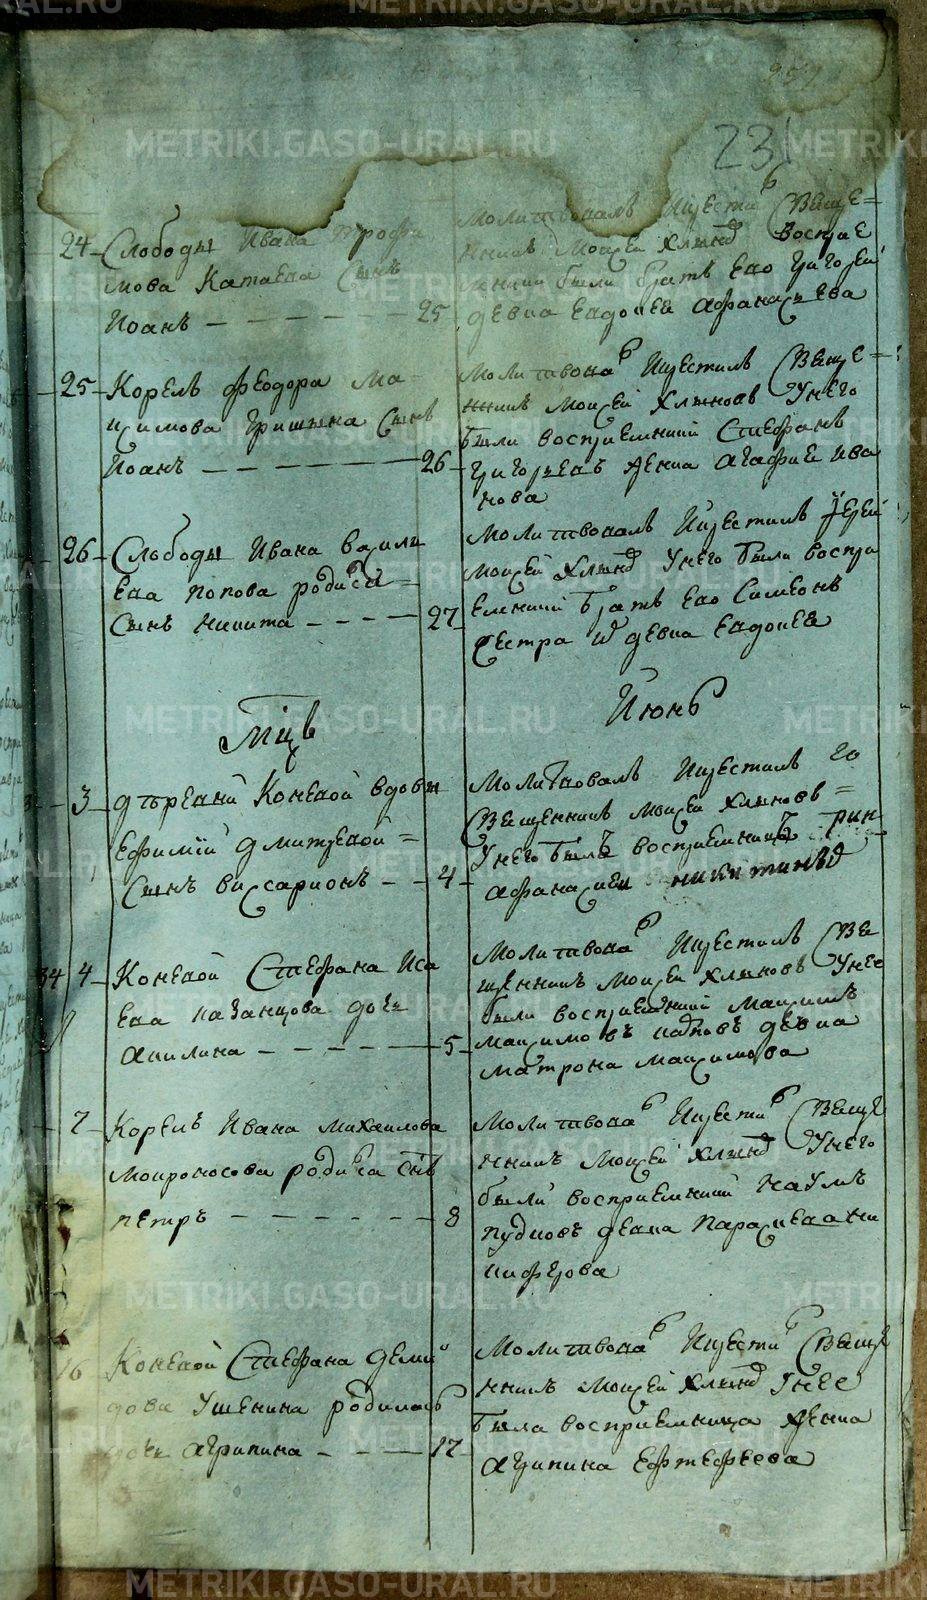 231
24 Слободы Ивана Трофи
мова Катаева сынъ
Иоанъ 25
Молитвовалъ и крестилъ Свяще=
нникъ Моисей Хлыновъ восприе
мники были братъ ево Григорей
девка Евдокея Афанасьева
25 Корелъ Феодора Ма=
ксимова Гришина сынъ
Иоанъ 26
Молитвова и крестилъ Свяще=
нникъ Моисей Хлыновъ У него
были восприемники Стефанъ
Григорьевъ женка Агафие Ива
нова
26 Слободы Ивана Василь
ева Попова родился=
сынъ Никита 27
Молитвовалъ и крестилъ иерей
Моисей Хлыновъ У него были воспри
емники братъ ево Симеонъ
сестра девка Евдокея
Мцъ Июнь
3 деревни Коневой вдовы
Ефимии Дмитревой=
сынъ Висарионъ 4
Молитвовалъ и крестилъ
Священникъ Моисей Хлыновъ=
У него былъ восприемникъ
Афанасей Никитинъ
34 4 Коневой Стефана Иса
ева Казанцова дочь
Акилина 5
Молитвова и крестилъ Свя
щенникъ Моисей Хлыновъ У нее
были восприемники Максимъ
Максимовъ девка
Матрона Максимова
7 Корелъ Ивана Михаилова
Мокроносова родился сынъ
Петръ 8
Молитвова и крести Свяще
нникъ Моисей Хлыновъ У него
были восприемники Наумъ
девка Параскева Ни
кифорова
16 Коневой Стефана Деми
дова Ушенина родилась
дочь Агрипина 17
Молитвова и крести Свяще
нникъ Моисей Хлыновъ У нее
была восприемница женка
Агрипина Ефтефеева
METRIKI.GASO-URAL.RU